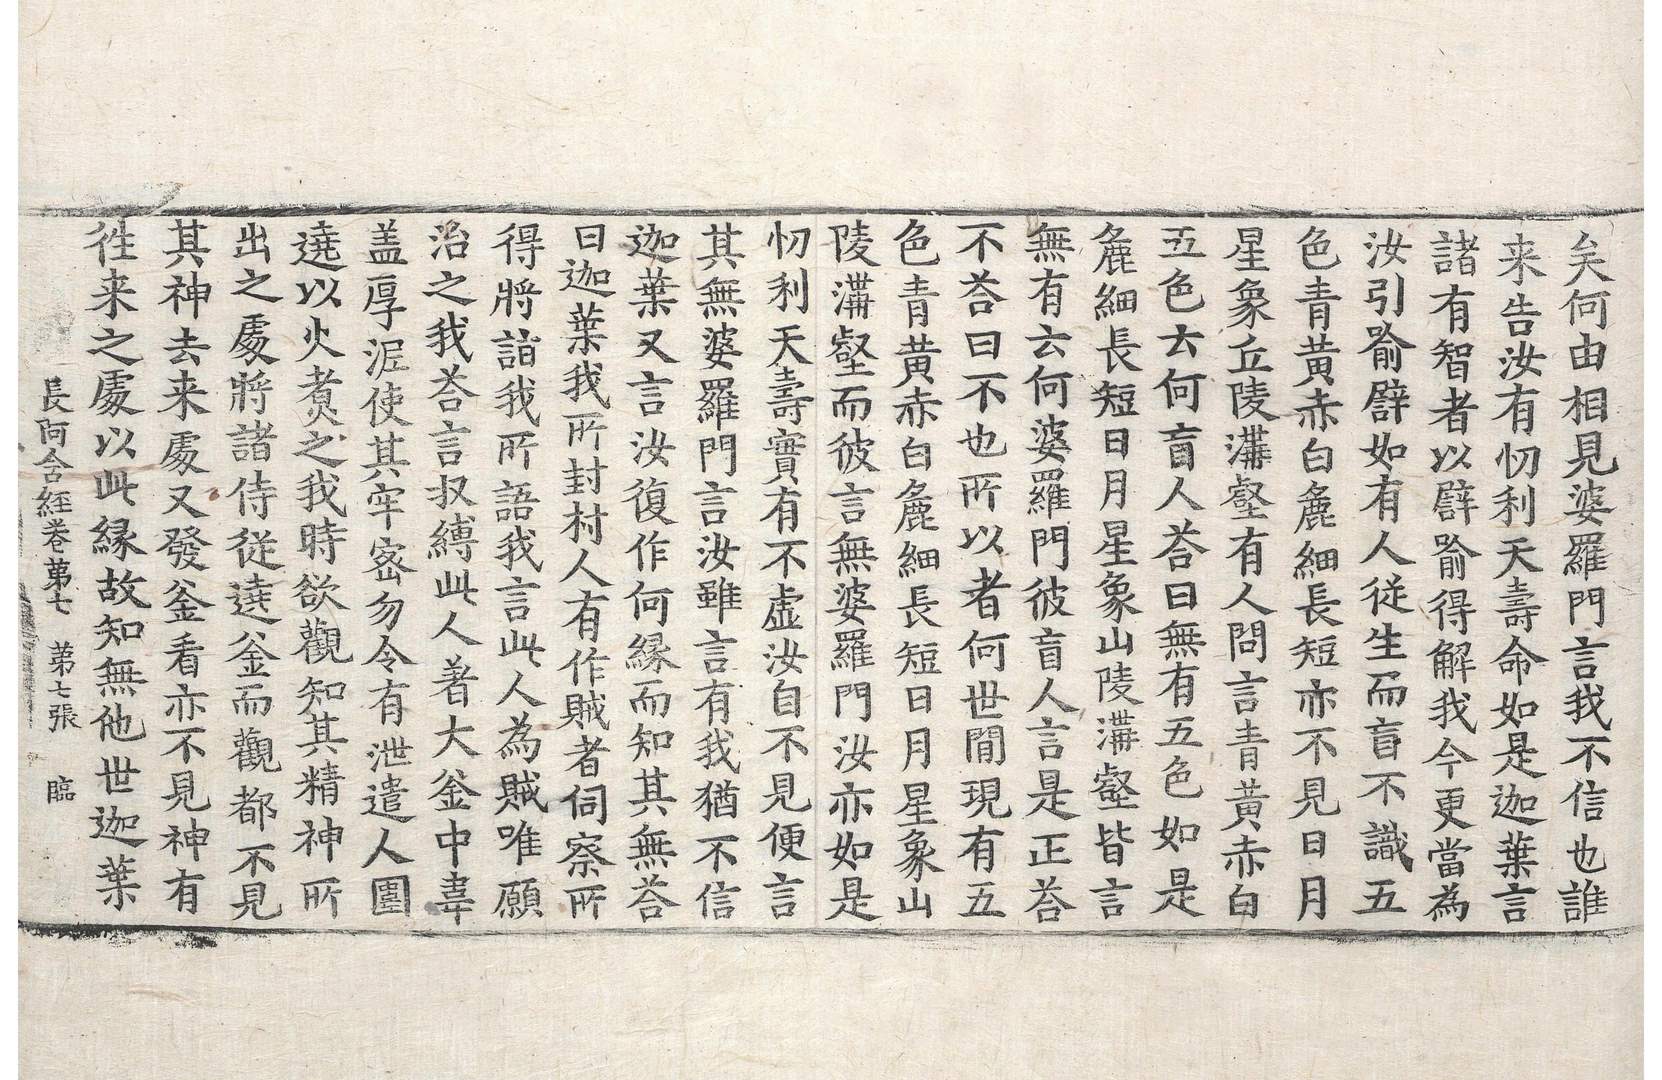 矣何由相見婆羅門言我不信也誰
来告汝有忉利天壽命如是迦葉言
諸有智者以譬喻得解我今更當為
汝引喻譬如有人従生而盲不識五
色青黄赤白麁細長短亦不見日月
星象丘陵溝壑有人問言青黄赤白
五色云何盲人荅曰無有五色如是
麁細長短日月星象山陵溝壑皆言
無有云何婆羅門彼盲人言是正荅
不荅曰不也所以者何世閒現有五
色青黄赤白麁細長短日月星象山
陵溝壑而彼言無婆羅門汝亦如是
忉利天壽實有不虛汝自不見便言
其無婆羅門言汝雖言有我猶不信
迦葉又言汝復作何縁而知其無荅
曰迦葉我所封村人有作賊者伺察所
得將詣我所語我言此人為賊唯願
治之我荅言収縛此人著大釜中韋
盖厚泥使其牢密勿令有泄遣人圍
遶以火煮之我時欲觀知其精神所
出之處將諸侍従遶釜而觀都不見
其神去来處又發釜看亦不見神有
徃来之處以此縁故知無他世迦葉
長阿含経卷苐七　苐七張　臨